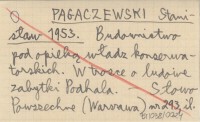 O
PAGACZEWSKI Stani-
sław 1953. Budownictwo
pod opieką władz konserwa-
torskich. W trosce o ludowe
zabytki Podhala. Słowo
Powszechne (Warszawa) nr 293, il.